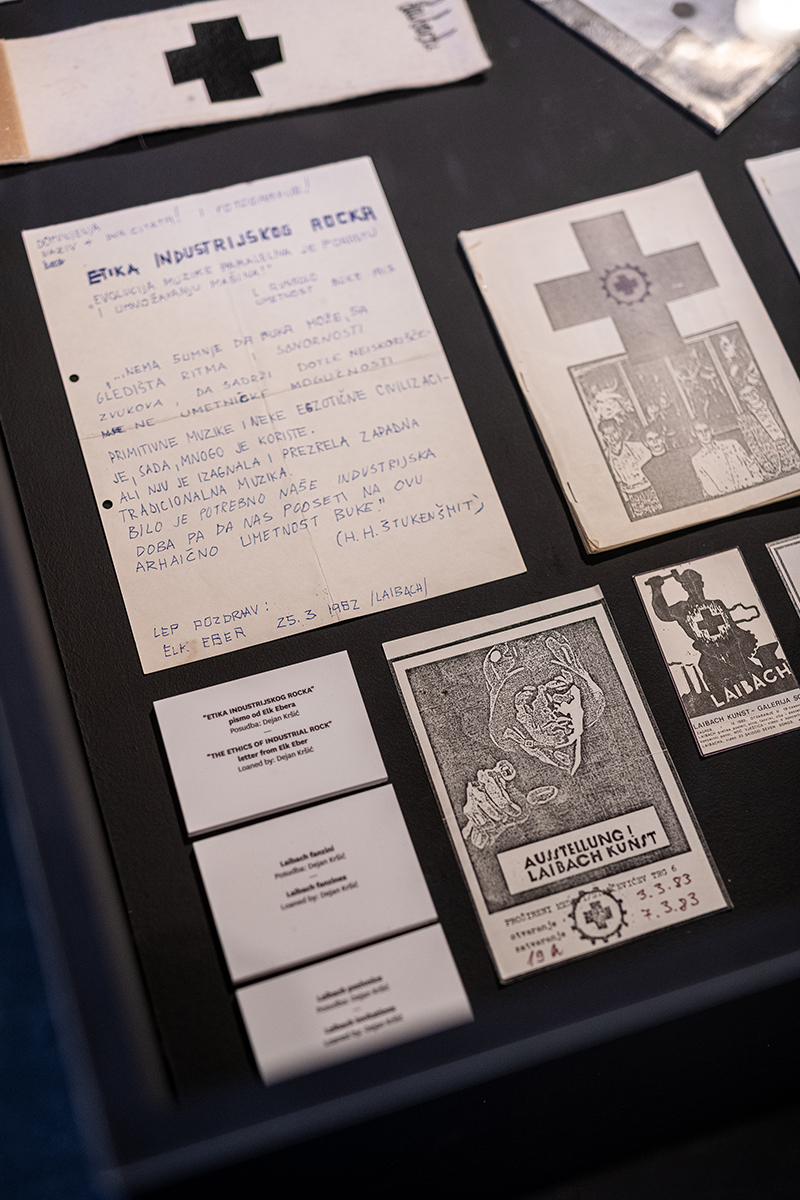 ETIKA INDUSTRIJSKOG ROCKA
"EVOLUCIJA MUZIKE PARALELNA JE PORASTU
I UMNOŽAVANJU MAŠINA!"
"...NEMA SUMNJE DA BUKA MOŽE, SA
GLEDIŠTA RITMA I SONORNOSTI
ZVUKOVA, DA SADRŽI DOTLE NEISKORIŠĆE-
NE UMETNIČKE MOGUĆNOSTI
PRIMITIVNE MUZIKE I NEKE EGZOTIČNE CIVILIZACI-
JE, SADA, MNOGO JE KORISTE.
ALI NJU JE IZAGNALA I PREZRELA ZAPADNA
TRADICIONALNA MUZIKA.
BILO JE POTREBNO NAŠE INDUSTRIJSKA
DOBA PA DA NAS PODSETI NA OVU
ARHAIČNO UMETNOST BUKE."
(H. H. ŠTUKENŠMIT)
LEP POZDRAV:
ELK EBER 25.3 1982 /LAIBACH/
"ETIKA INDUSTRIJSKOG ROCKA"
pismo od Elk Ebera
Posudba: Dejan Kršić
—
"THE ETHICS OF INDUSTRIAL ROCK"
letter from Elk Eber
Loaned by: Dejan Kršić
Laibach fanzini
Posudba: Dejan Kršić
—
Laibach fanzines
Loaned by: Dejan Kršić
Laibach pozivnice
Posudba: Dejan Kršić
—
Laibach invitations
Loaned by: Dejan Kršić
AUSSTELLUNG!
LAIBACH KUNST
PROŠIRENI TRG 6
otvaranje 3.3.83
zatvaranje 7.3.83
19h
LAIBACH
LAIBACH KUNST - GALERIJA